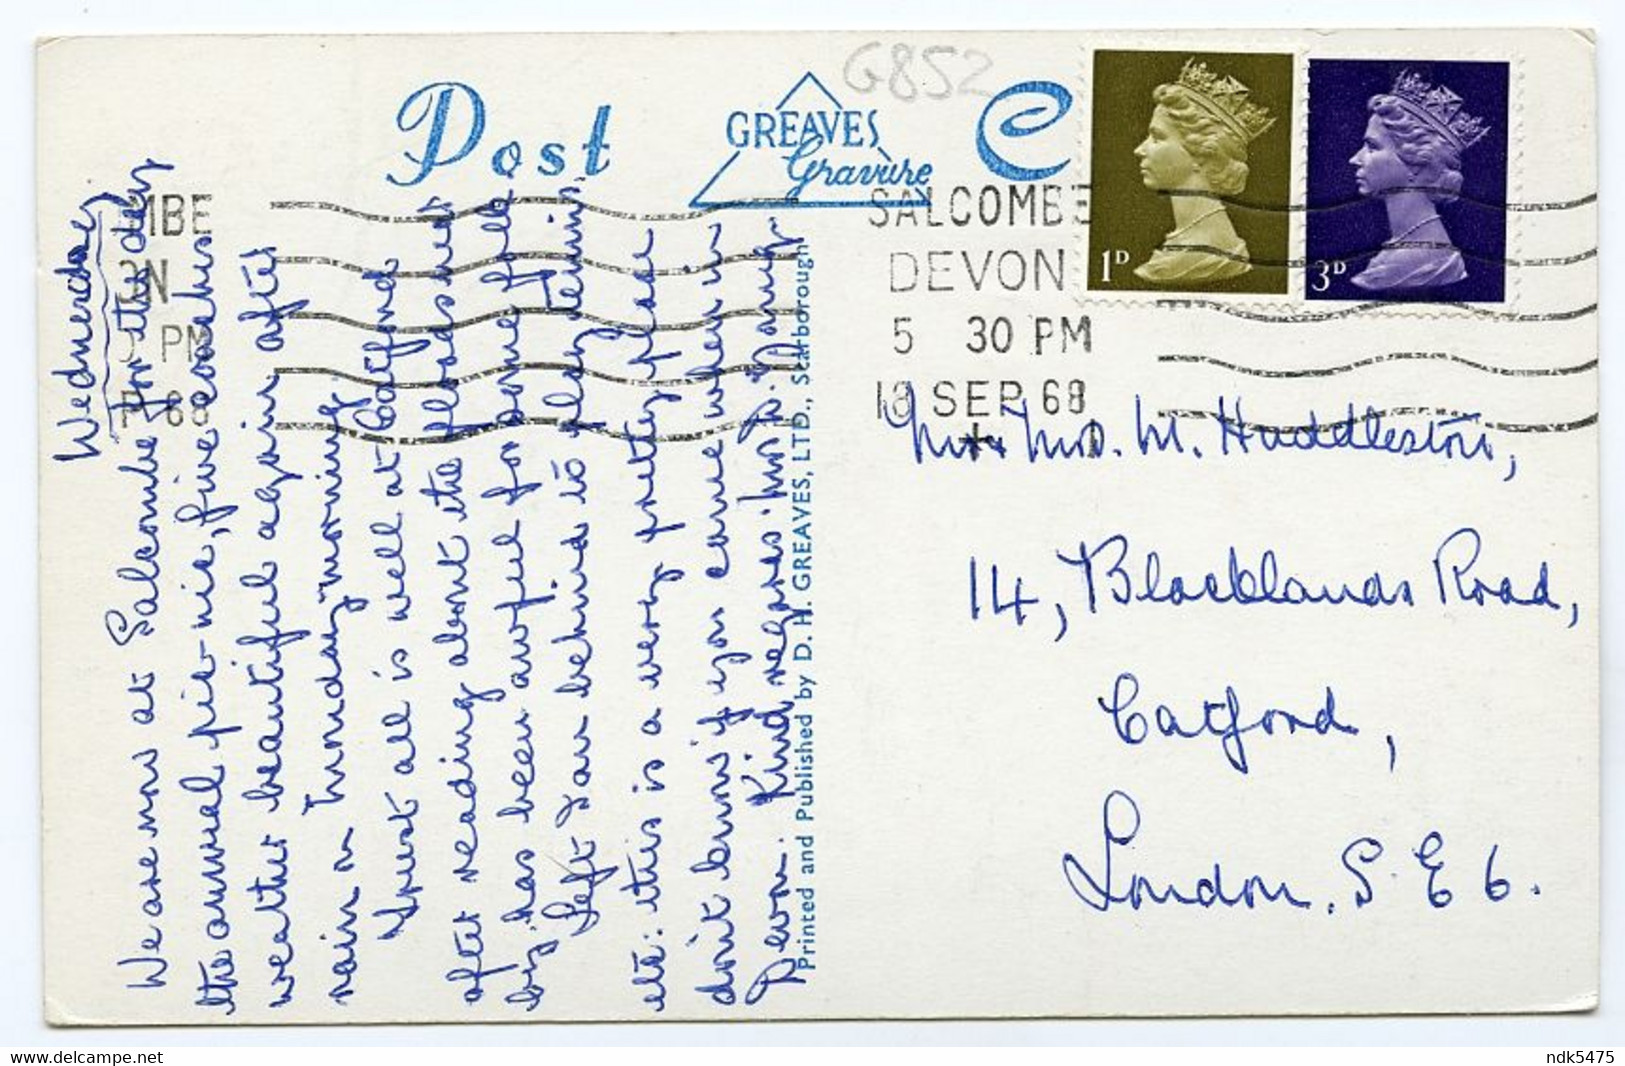 G852
Post C
GREAVES
Gravure
MBE
SALCOMBE
DEVON
5 30 PM
18 SEP 68
PM
68
1D
3D
Wednesday
We are now at Salcombe for the day
the annual pic-nic, five coaches
weather beautiful again after
rain on Monday morning.
Trust all is well at Catford
after reading about the floods here
by. has been awful for some folk
Left Ian behind to play tennis.
etc: this is a very pretty place
don't know if you came when in
Devon. Kind regards. Mrs D.
Printed and Published by D. H. GREAVES, LTD., Scarborough
Mr & Mrs. M. Huddleston,
14, Blacklands Road,
Catford,
London. S. E 6.
ndk5475